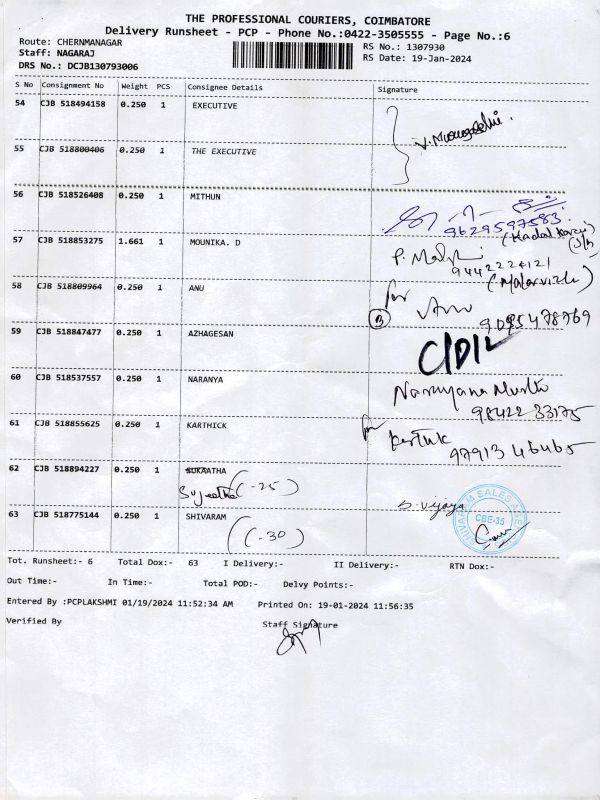 THE PROFESSIONAL COURIERS, COIMBATORE
Delivery Runsheet - PCP - Phone No.:0422-3505555 - Page No.:6
Route: CHERNMANAGAR
Staff: NAGARAJ
DRS No.: DCJB130793006
RS No.: 1307930
RS Date: 19-Jan-2024
S No Consignment No Weight PCS Consignee Details Signature
54 CJB 518494158 0.250 1 EXECUTIVE
55 CJB 518800406 0.250 1 THE EXECUTIVE
56 CJB 518526408 0.250 1 MITHUN
9629597583
57 CJB 518853275 1.661 1 MOUNIKA. D
9442224121
(Malarvizhi)
58 CJB 518809964 0.250 1 ANU
for Anu
B 9095478769
59 CJB 518847477 0.250 1 AZHAGESAN
C/D/L
60 CJB 518537557 0.250 1 NARANYA
Narayana
98422 33175
61 CJB 518855625 0.250 1 KARTHICK
for
97913 46465
62 CJB 518894227 0.250 1 SUKAATHA
Sujeetha (-25)
S. Vijaya
63 CJB 518775144 0.250 1 SHIVARAM
(-30)
CBE-35
Tot. Runsheet:- 6 Total Dox:- 63 I Delivery:- II Delivery:- RTN Dox:-
Out Time:- In Time:- Total POD:- Delvy Points:-
Entered By :PCPLAKSHMI 01/19/2024 11:52:34 AM Printed On: 19-01-2024 11:56:35
Verified By Staff Signature